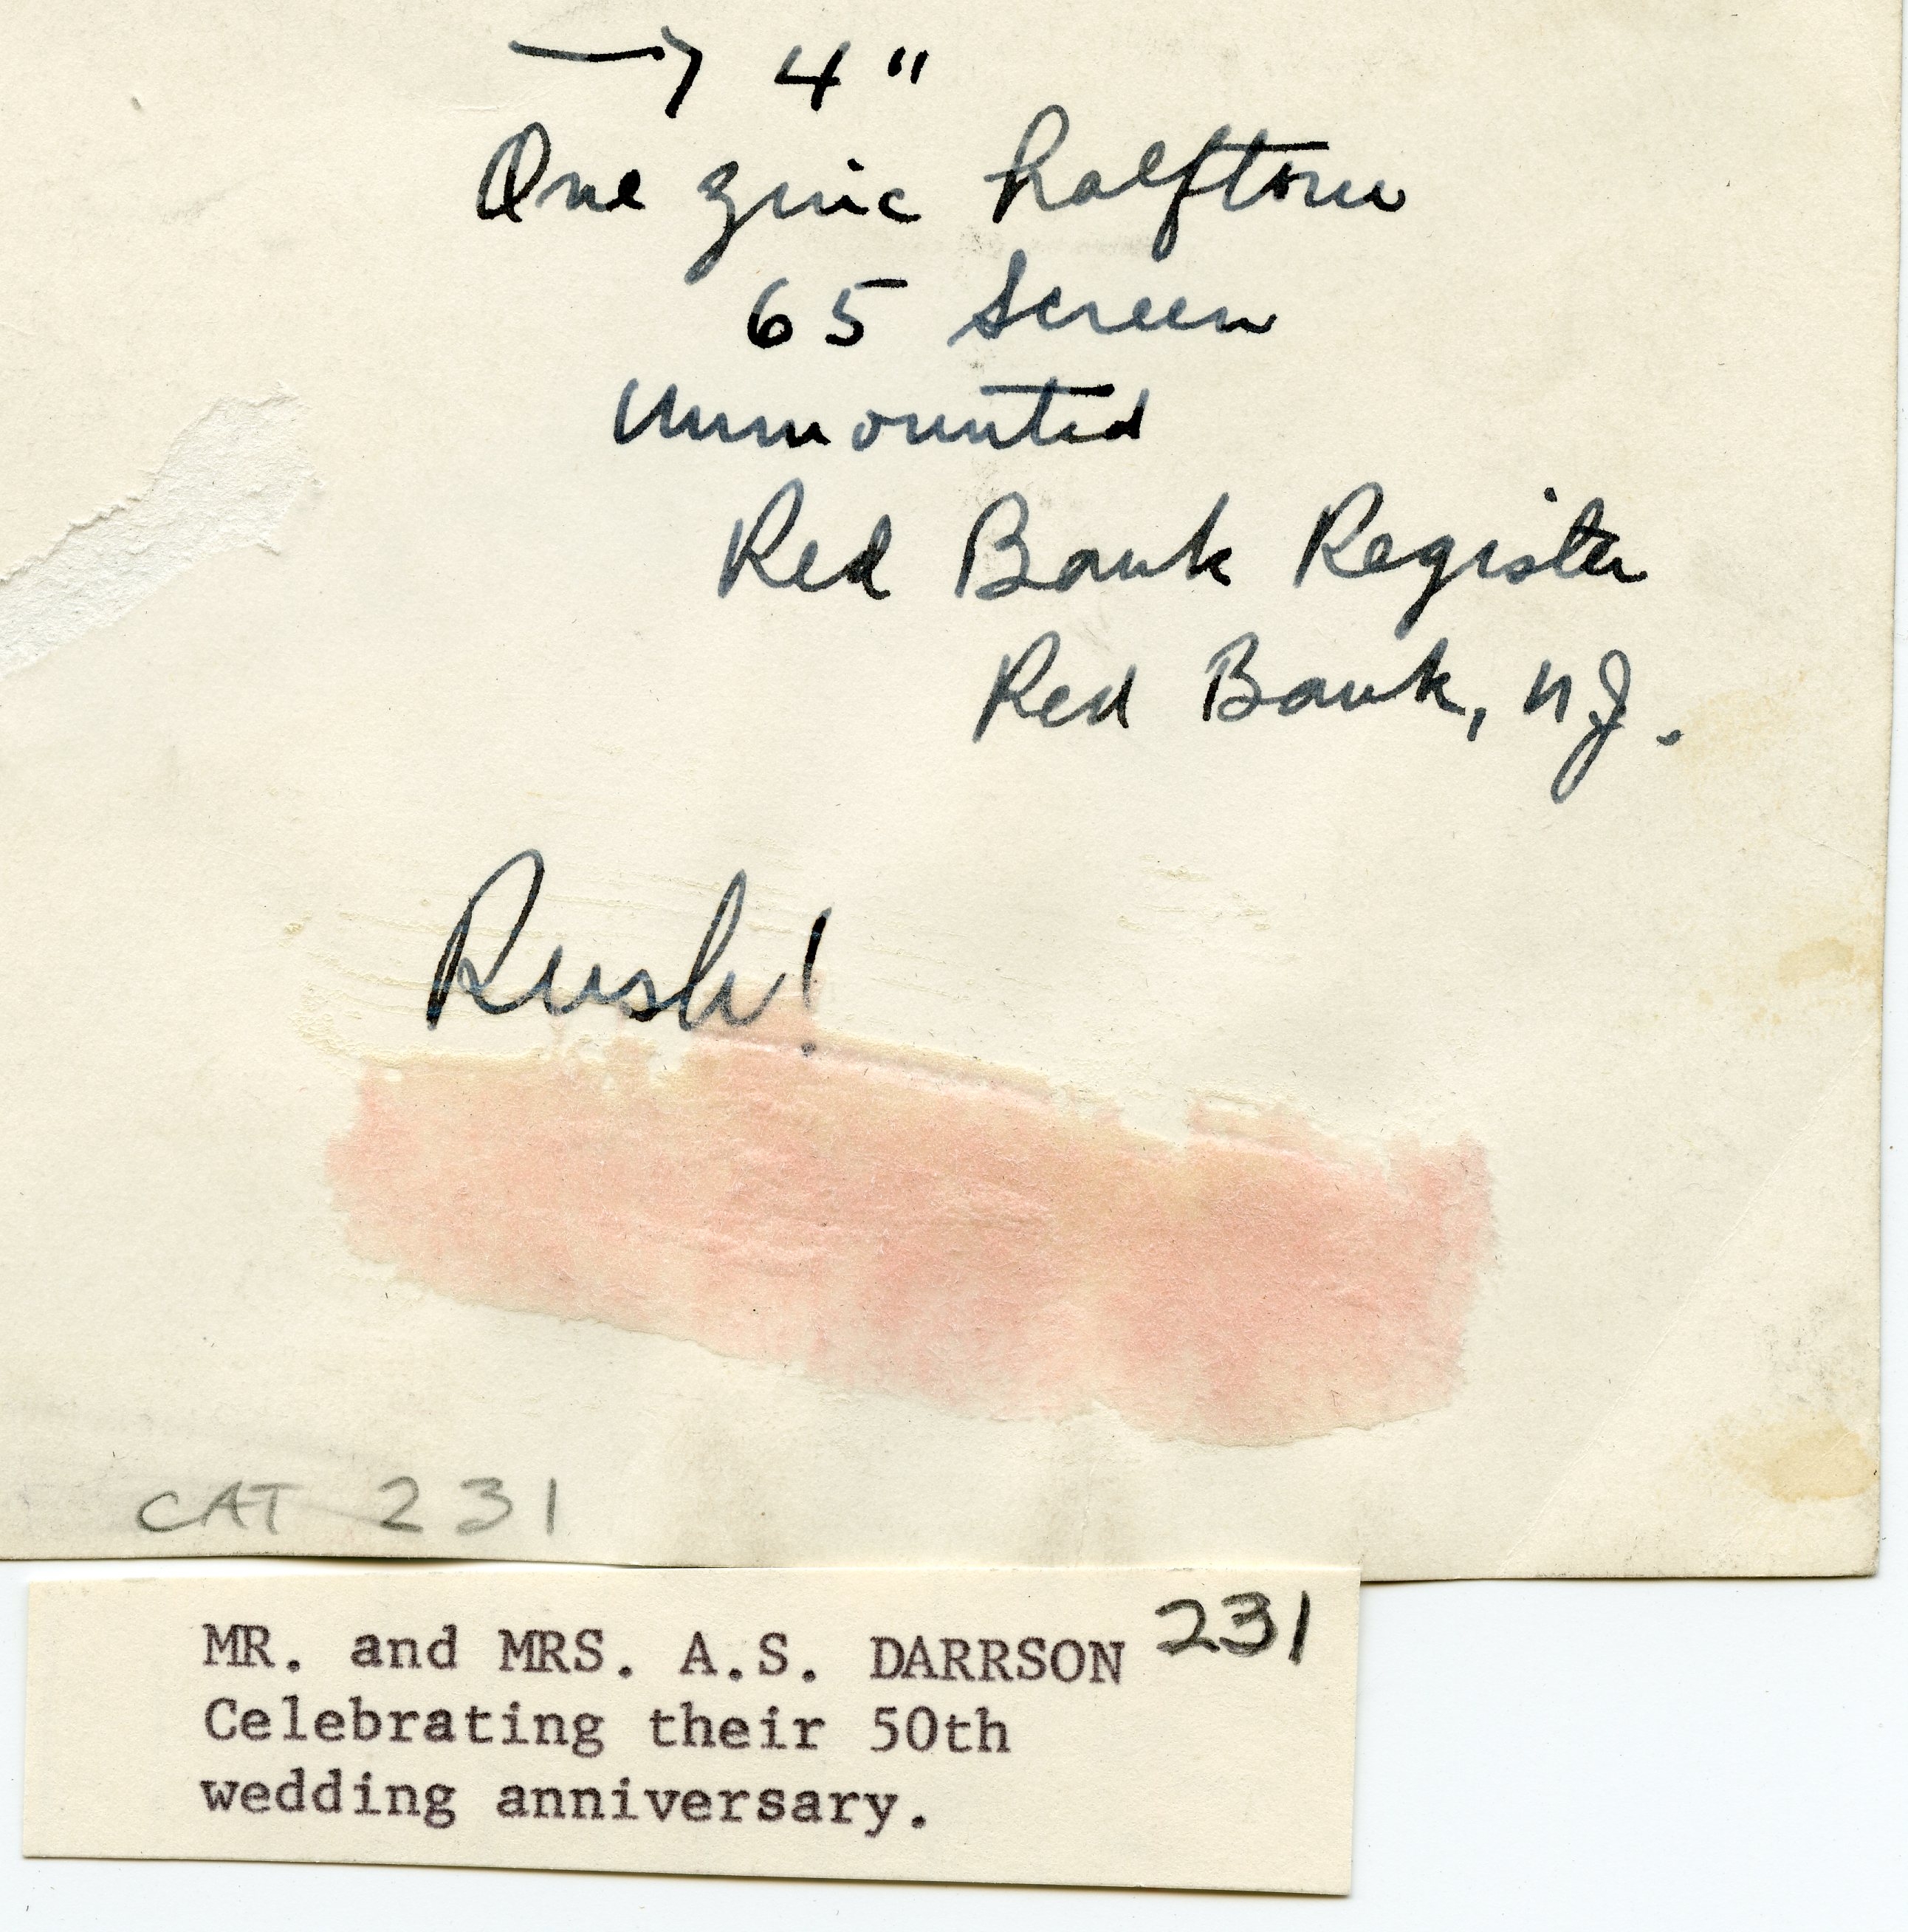 → 4"
One zinc halftone
65 Screen
Unmounted
Red Bank Register
Red Bank, NJ.
Rush!
CAT 231
MR. and MRS. A.S. DARRSON 231
Celebrating their 50th
wedding anniversary.